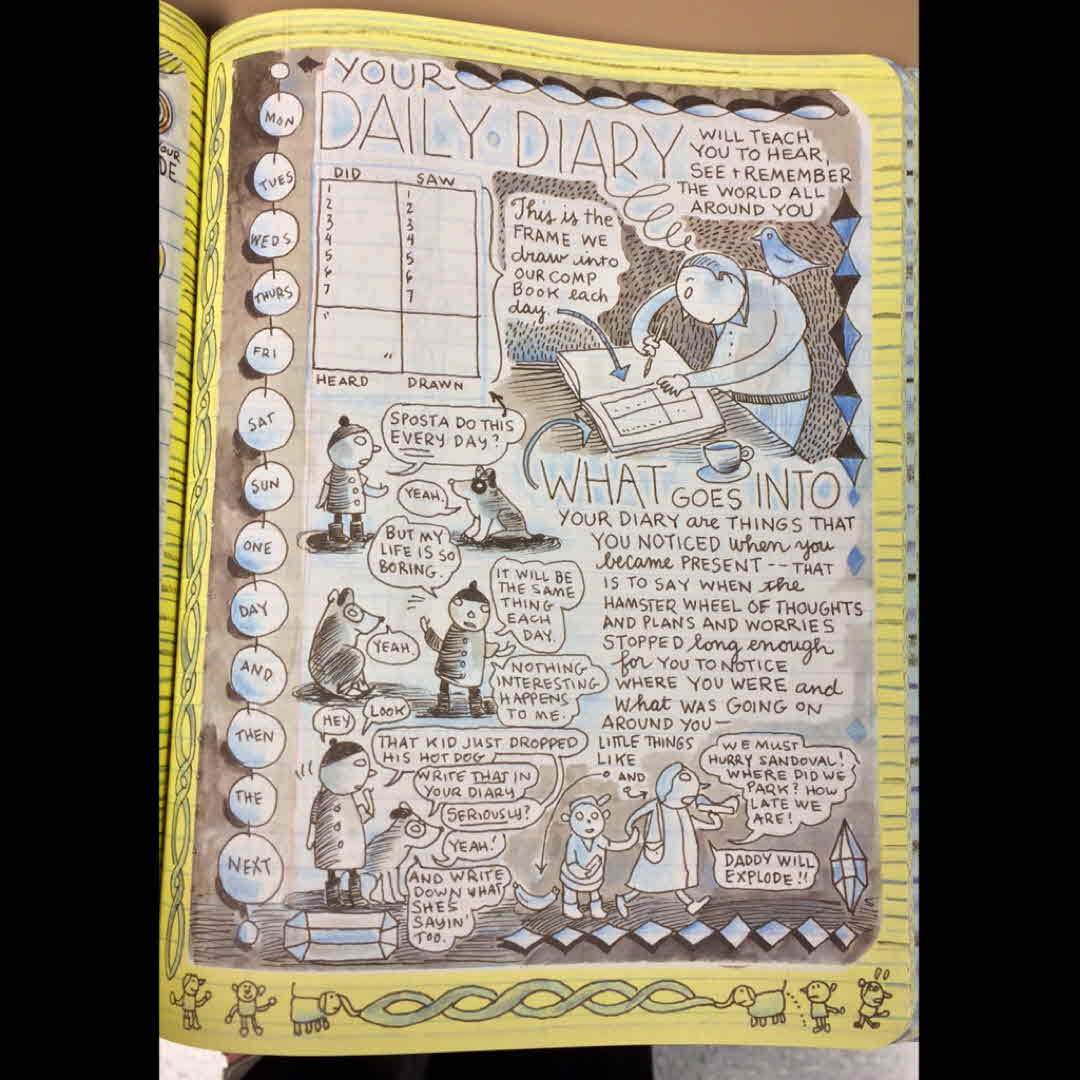 OUR
DE
MON
TUES
WEDS
THURS
FRI
SAT
SUN
ONE
DAY
AND
THEN
THE
NEXT
YOUR
DAILY DIARY
WILL TEACH
YOU TO HEAR,
SEE + REMEMBER
THE WORLD ALL
AROUND YOU
DID
SAW
1
2
3
4
5
6
7
1
2
3
4
5
6
7
"
"
HEARD
DRAWN
This is the
FRAME WE
draw into
OUR COMP
BOOK each
day.
SPOSTA DO THIS
EVERY DAY?
YEAH.
BUT MY
LIFE IS SO
BORING.
IT WILL BE
THE SAME
THING
EACH
DAY.
YEAH.
NOTHING
INTERESTING
HAPPENS
TO ME.
WHAT GOES INTO
YOUR DIARY are THINGS THAT
YOU NOTICED when you
became PRESENT -- THAT
IS TO SAY WHEN the
HAMSTER WHEEL OF THOUGHTS
AND PLANS AND WORRIES
STOPPED long enough
for YOU TO NOTICE
WHERE YOU WERE and
what WAS GOING ON
AROUND YOU—
LITTLE THINGS
LIKE
AND
HEY
LOOK
THAT KID JUST DROPPED
HIS HOT DOG
WRITE THAT IN
YOUR DIARY
SERIOUSLY?
YEAH!
AND WRITE
DOWN WHAT
SHES
SAYIN'
TOO.
WE MUST
HURRY SANDOVAL!
WHERE DID WE
PARK? HOW
LATE WE
ARE!
DADDY WILL
EXPLODE!!